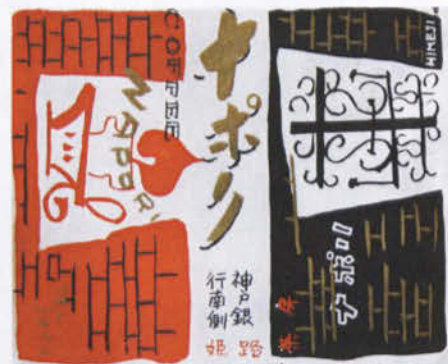 COFFEE
Napori
ナポリ
神戸銀
行南側
姫路
HIMEJI
ナポリ